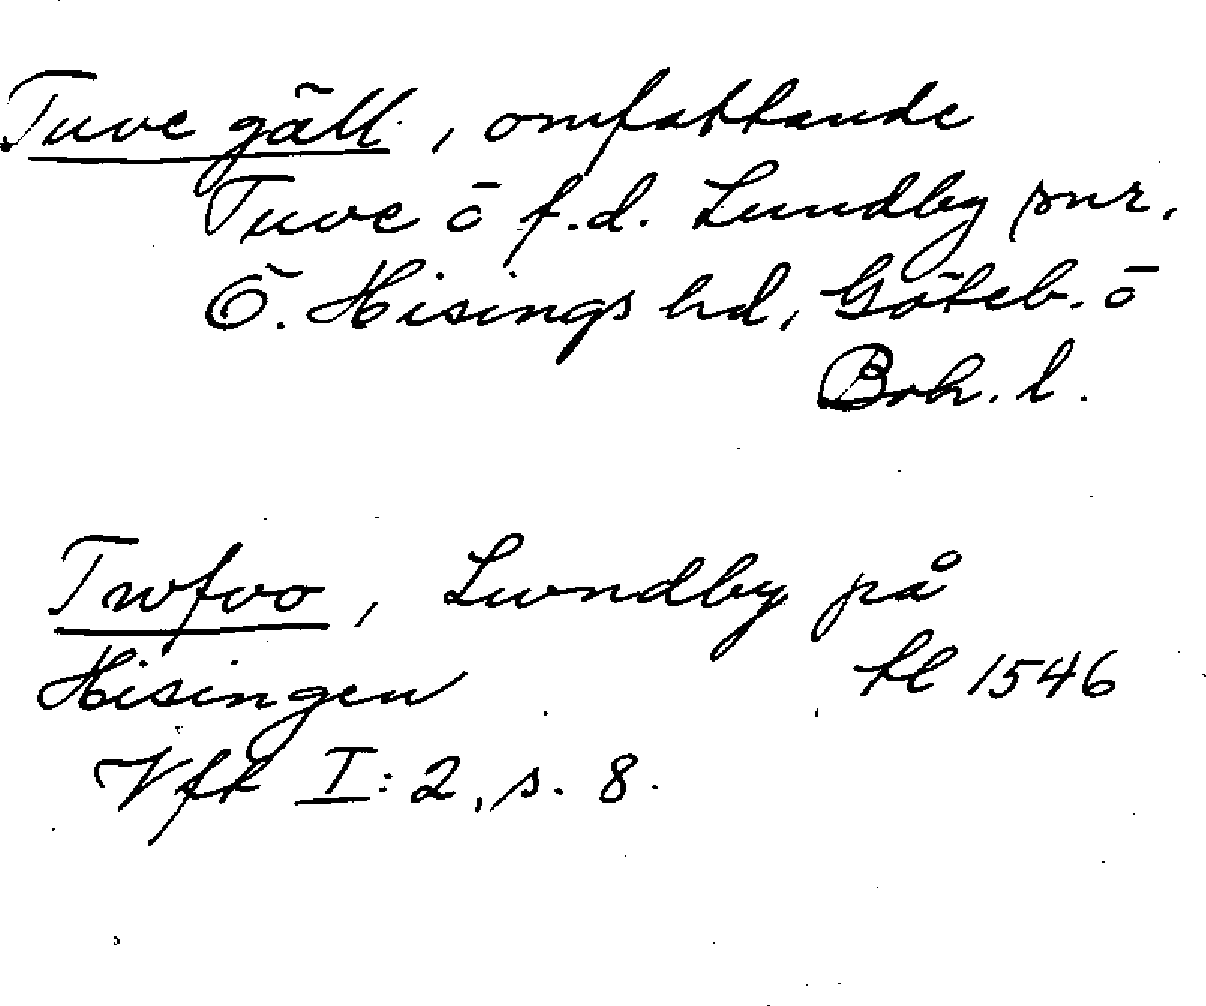 Tuve gäll., omfattande
Tuve o f.d. Lundby snr.
Ö. Hisings hd, Göteb. o
Boh. l.
Twfvo, Lwndby på
Hisingen tl 1546
Vfk I:2, s. 8.